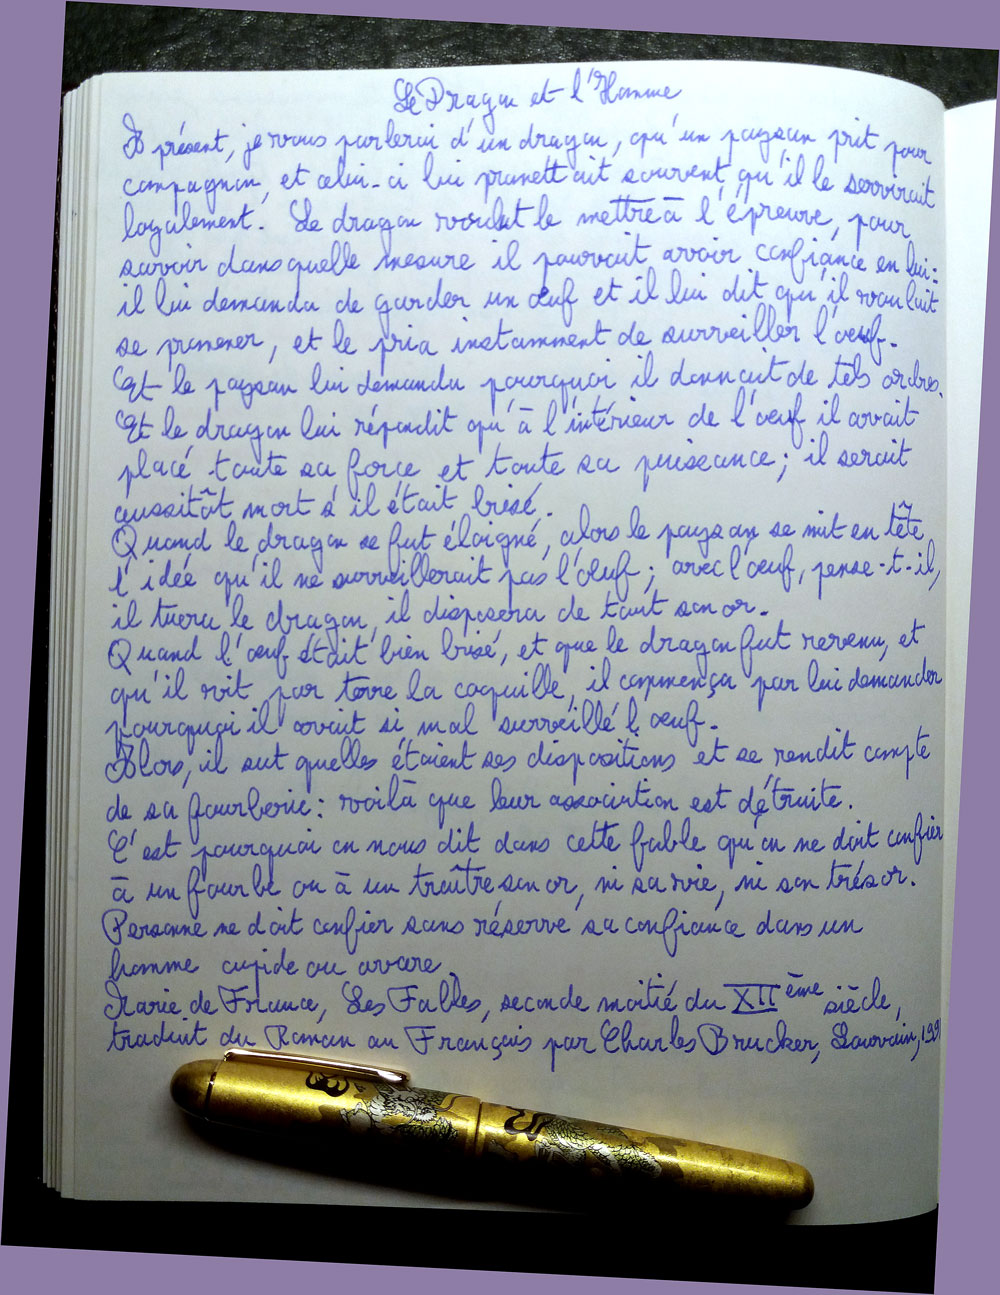 Le Dragon et l'Homme
A présent, je vous parlerai d'un dragon, qu'un paysan prit pour
compagnon, et celui-ci lui promettait souvent qu'il le servirait
loyalement. Le dragon voulut le mettre à l'épreuve, pour
savoir dans quelle mesure il pourrait avoir confiance en lui :
il lui demanda de garder un œuf et il lui dit qu'il voulait
se promener, et le pria instamment de surveiller l'œuf.
Et le paysan lui demanda pourquoi il donnait de tels ordres.
Et le dragon lui répondit qu'à l'intérieur de l'œuf il avait
placé toute sa force et toute sa puissance ; il serait
aussitôt mort s'il était brisé.
Quand le dragon se fut éloigné, alors le paysan se mit en tête
l'idée qu'il ne surveillerait pas l'œuf ; avec l'œuf, pense-t-il,
il tuera le dragon, il disposera de tout son or.
Quand l'œuf était bien brisé, et que le dragon fut revenu, et
qu'il vit par terre la coquille, il commença par lui demander
pourquoi il avait si mal surveillé l'œuf.
Alors, il sut quelles étaient ses dispositions et se rendit compte
de sa fourberie : voilà que leur association est détruite.
C'est pourquoi on nous dit dans cette fable qu'on ne doit confier
à un fourbe ou à un traître son or, ni sa vie, ni son trésor.
Personne ne doit confier sans réserve sa confiance dans un
homme cupide ou avare.
Marie de France, Les Fables, seconde moitié du XIIème siècle,
traduit du Roman au Français par Charles Brucker, Louvain,